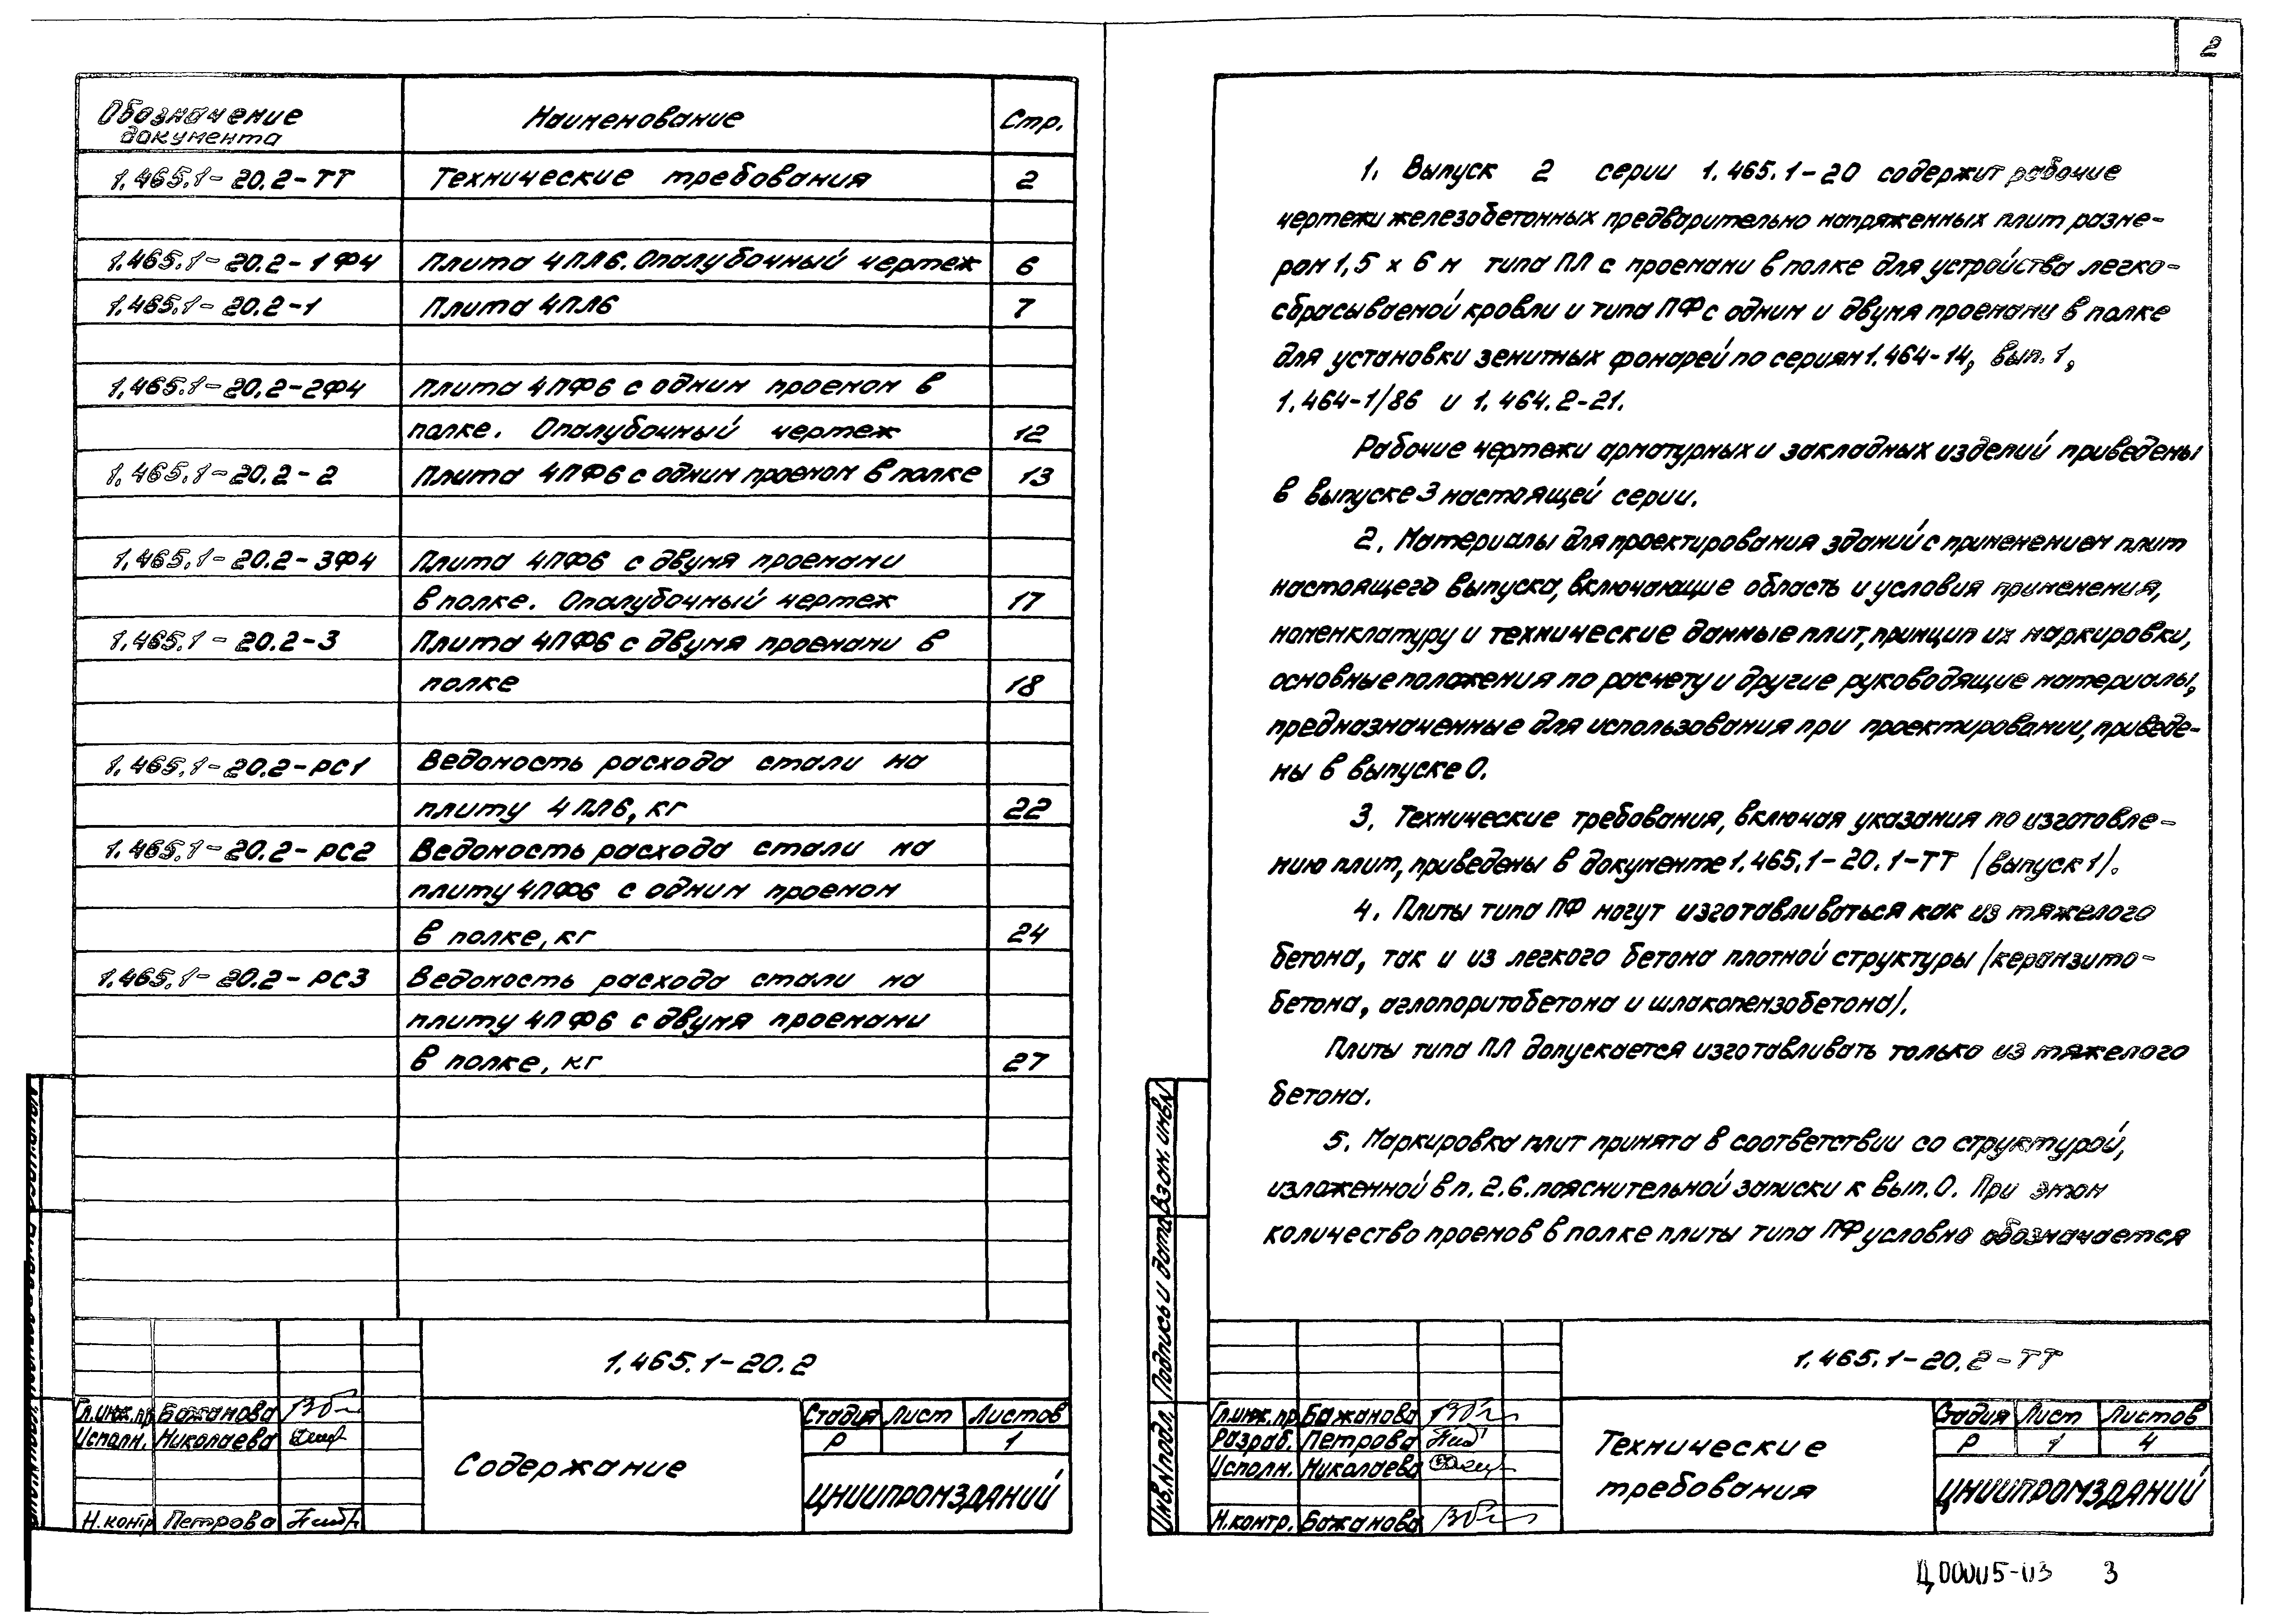 Обозначение документа Наименование Стр.
1.465.1-20.2-ТТ Технические требования 2
1.465.1-20.2-1Ф4 Плита 4ПЛ6. Опалубочный чертеж 6
1.465.1-20.2-1 Плита 4ПЛ6 7
1.465.1-20.2-2Ф4 Плита 4ПФ6 с одним проемом в
полке. Опалубочный чертеж 12
1.465.1-20.2-2 Плита 4ПФ6 с одним проемом в полке 13
1.465.1-20.2-3Ф4 Плита 4ПФ6 с двумя проемами
в полке. Опалубочный чертеж 17
1.465.1-20.2-3 Плита 4ПФ6 с двумя проемами в
полке 18
1.465.1-20.2-РС1 Ведомость расхода стали на
плиту 4ПЛ6, кг 22
1.465.1-20.2-РС2 Ведомость расхода стали на
плиту 4ПФ6 с одним проемом
в полке, кг 24
1.465.1-20.2-РС3 Ведомость расхода стали на
плиту 4ПФ6 с двумя проемами
в полке, кг 27
1.465.1-20.2
Гл.инж.пр Бажанова
Исполн. Николаева
Н.контр Петрова
Содержание
Стадия Лист Листов
Р 1
ЦНИИПРОМЗДАНИЙ
2
1. Выпуск 2 серии 1.465.1-20 содержит рабочие
чертежи железобетонных предварительно напряженных плит разме-
ром 1,5 х 6 м типа ПЛ с проемами в полке для устройства легко-
сбрасываемой кровли и типа ПФ с одним и двумя проемами в полке
для установки зенитных фонарей по сериям 1.464-14, вып. 1,
1.464-1/86 и 1.464.2-21.
Рабочие чертежи арматурных и закладных изделий приведены
в выпуске 3 настоящей серии.
2. Материалы для проектирования зданий с применением плит
настоящего выпуска, включающие область и условия применения,
номенклатуру и технические данные плит, принцип их маркировки,
основные положения по расчету и другие руководящие материалы,
предназначенные для использования при проектировании, приведе-
ны в выпуске 0.
3. Технические требования, включая указания по изготовле-
нию плит, приведены в документе 1.465.1-20.1-ТТ (выпуск 1).
4. Плиты типа ПФ могут изготавливаться как из тяжелого
бетона, так и из легкого бетона плотной структуры (керамзито-
бетона, аглопоритобетона и шлакопемзобетона).
Плиты типа ПЛ допускается изготавливать только из тяжелого
бетона.
5. Маркировка плит принята в соответствии со структурой,
изложенной в п. 2.6. пояснительной записки к вып. 0. При этом
количество проемов в полке плиты типа ПФ условно обозначается
Взам. инв.№
Подпись и дата
Инв.№подл.
1.465.1-20.2-ТТ
Гл.инж.пр Бажанова
Разраб. Петрова
Исполн. Николаева
Н.контр. Бажанова
Технические
требования
Стадия Лист Листов
Р 1 4
ЦНИИПРОМЗДАНИЙ
Ц00005-03 3